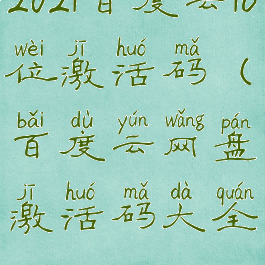 2021百度云10
wèi jī huó mǎ
位激活码（
bǎi dù yún wǎng pán
百度云网盘
jī huó mǎ dà quán
激活码大全